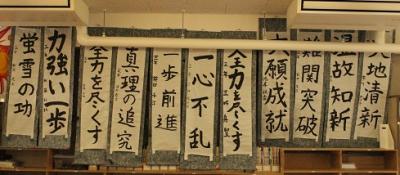 地清新
温故知新
難関突破
大願成就
全力を尽くす
一心不乱
一歩前進
真理の追究
全力を尽くす
力強い一歩
蛍雪の功